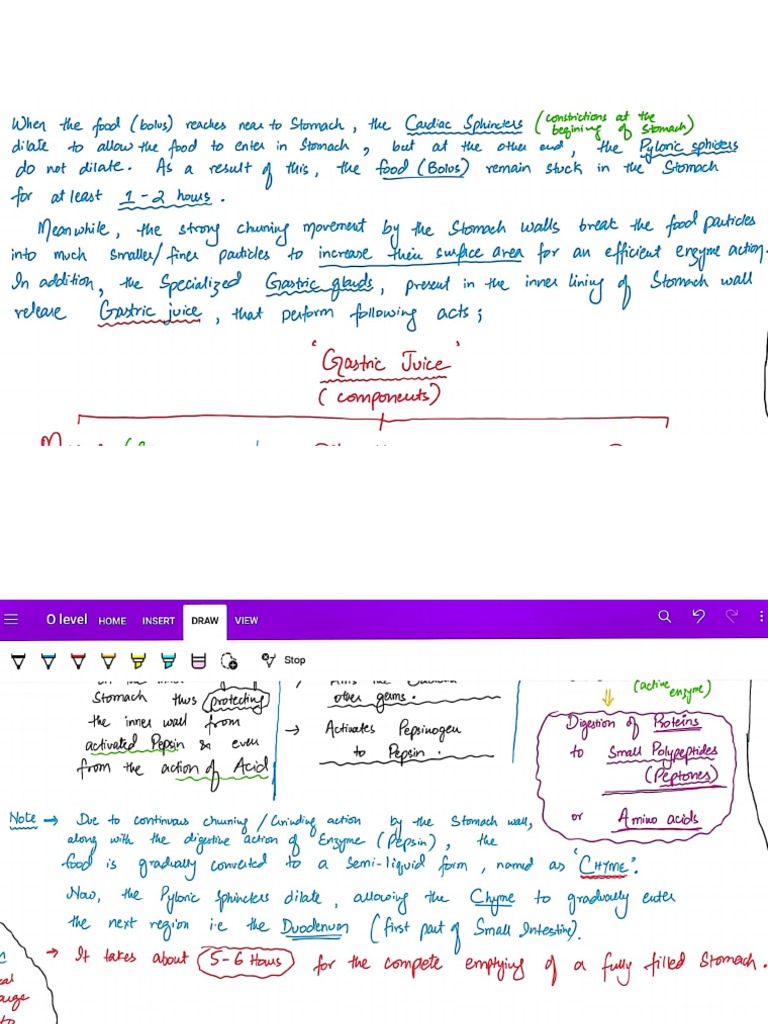 When the food (bolus) reaches near to Stomach, the Cardiac Sphincters (constrictions at the begining of Stomach)
dilate to allow the food to enter in Stomach, but at the other end, the Pyloric sphicters
do not dilate. As a result of this, the food (Bolus) remain stuck in the Stomach
for at least 1-2 hours.
Meanwhile, the strong churning movement by the Stomach walls break the food particles
into much smaller/finer particles to increase their surface area for an efficient enzyme action.
In addition, the Specialized Gastric glands, present in the inner lining of Stomach wall
release Gastric juice, that perform following acts;
'Gastric Juice'
(components)
O level HOME INSERT DRAW VIEW
Stop
Stomach thus protecting
the inner wall from
activated Pepsin & even
from the action of Acid
other germs.
→ Activates Pepsinogen
to Pepsin.
(active enzyme)
Digestion of Proteins
to Small Polypeptides
(Peptones)
or Amino acids
Note → Due to continuous churning/Grinding action by the Stomach wall,
along with the digestive action of Enzyme (Pepsin), the
food is gradually converted to a semi-liquid form, named as "CHYME".
Now, the Pyloric Sphincters dilate, allowing the Chyme to gradually enter
the next region i.e the Duodenum (first part of Small Intestine).
→ It takes about 5-6 Hours for the complete emptying of a fully filled Stomach.